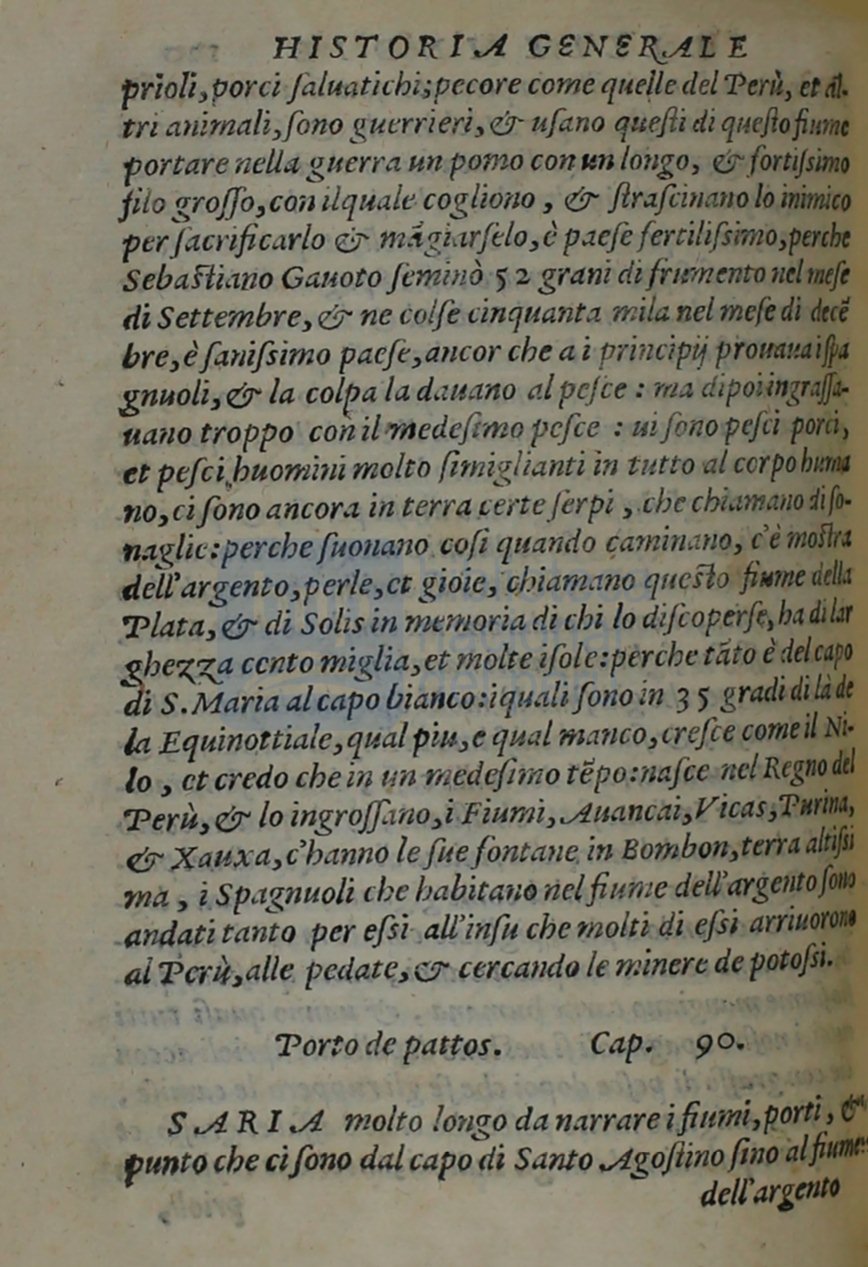 HISTORIA GENERALE
prioli, porci ſaluatichi; pecore come quelle del Perù, et al-
tri animali, ſono guerrieri, & uſano queſti di queſto fiume
portare nella guerra un pomo con un longo, & fortiſsimo
filo groſſo, con ilquale cogliono, & ſtraſcinano lo inimico
per ſacrificarlo & mãgiarſelo, è paeſe fertiliſsimo, perche
Sebaſtiano Gauoto ſeminò 52 grani di frumento nel meſe
di Settembre, & ne colſe cinquanta mila nel meſe di decẽ
bre, è ſaniſsimo paeſe, ancor che a i principij prouaua iſpa
gnuoli, & la colpa la dauano al peſce: ma dipoi ingraſſa-
uano troppo con il medeſimo peſce: ui ſono peſci porci,
et peſci huomini molto ſimiglianti in tutto al corpo huma
no, ci ſono ancora in terra certe ſerpi, che chiamano di ſo-
naglie: perche ſuonano coſi quando caminano, c'è moſtra
dell'argento, perle, et gioie, chiamano queſto fiume della
Plata, & di Solis in memoria di chi lo diſcoperſe, ha di lar
ghezza cento miglia, et molte iſole: perche tãto è del capo
di S. Maria al capo bianco: iquali ſono in 35 gradi di là de
la Equinottiale, qual piu, e qual manco, creſce come il Ni-
lo, et credo che in un medeſimo tẽpo: naſce nel Regno del
Perù, & lo ingroſſano, i Fiumi, Auancai, Vicas, Purina,
& Xauxa, c'hanno le ſue fontane in Bombon, terra altiſsi
ma, i Spagnuoli che habitano nel fiume dell'argento ſono
andati tanto per eſsi all'inſu che molti di eſsi arriuorono
al Perù, alle pedate, & cercando le minere de potoſsi.
Porto de pattos. Cap. 90.
SARIA molto longo da narrare i fiumi, porti, &
punto che ci ſono dal capo di Santo Agoſtino ſino al fiume
dell'argento